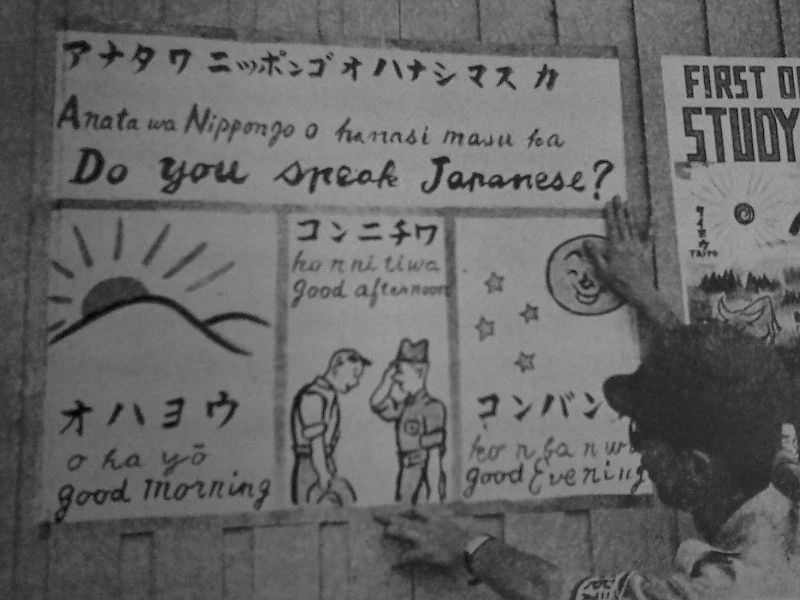 アナタワ ニッポンゴ オ ハナシマスカ
Anata wa Nippongo o hanasi masu ka
Do you speak Japanese?
オハヨウ
o ha yō
good morning
コンニチワ
ko n ni ti wa
good afternoon
コンバン
ko n ba n w
good Evening
FIRST O
STUDY
タイヨウ
TAIYO